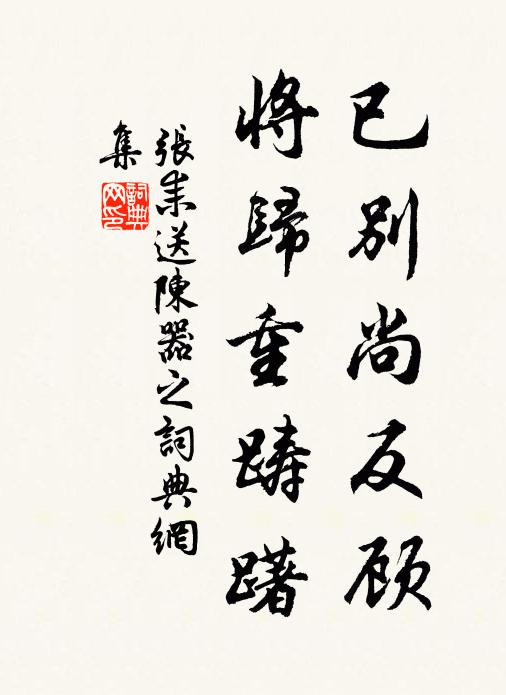 已别尚反顾
將歸重踌躇
張耒送陳器之詞典網
集
詞典
网印